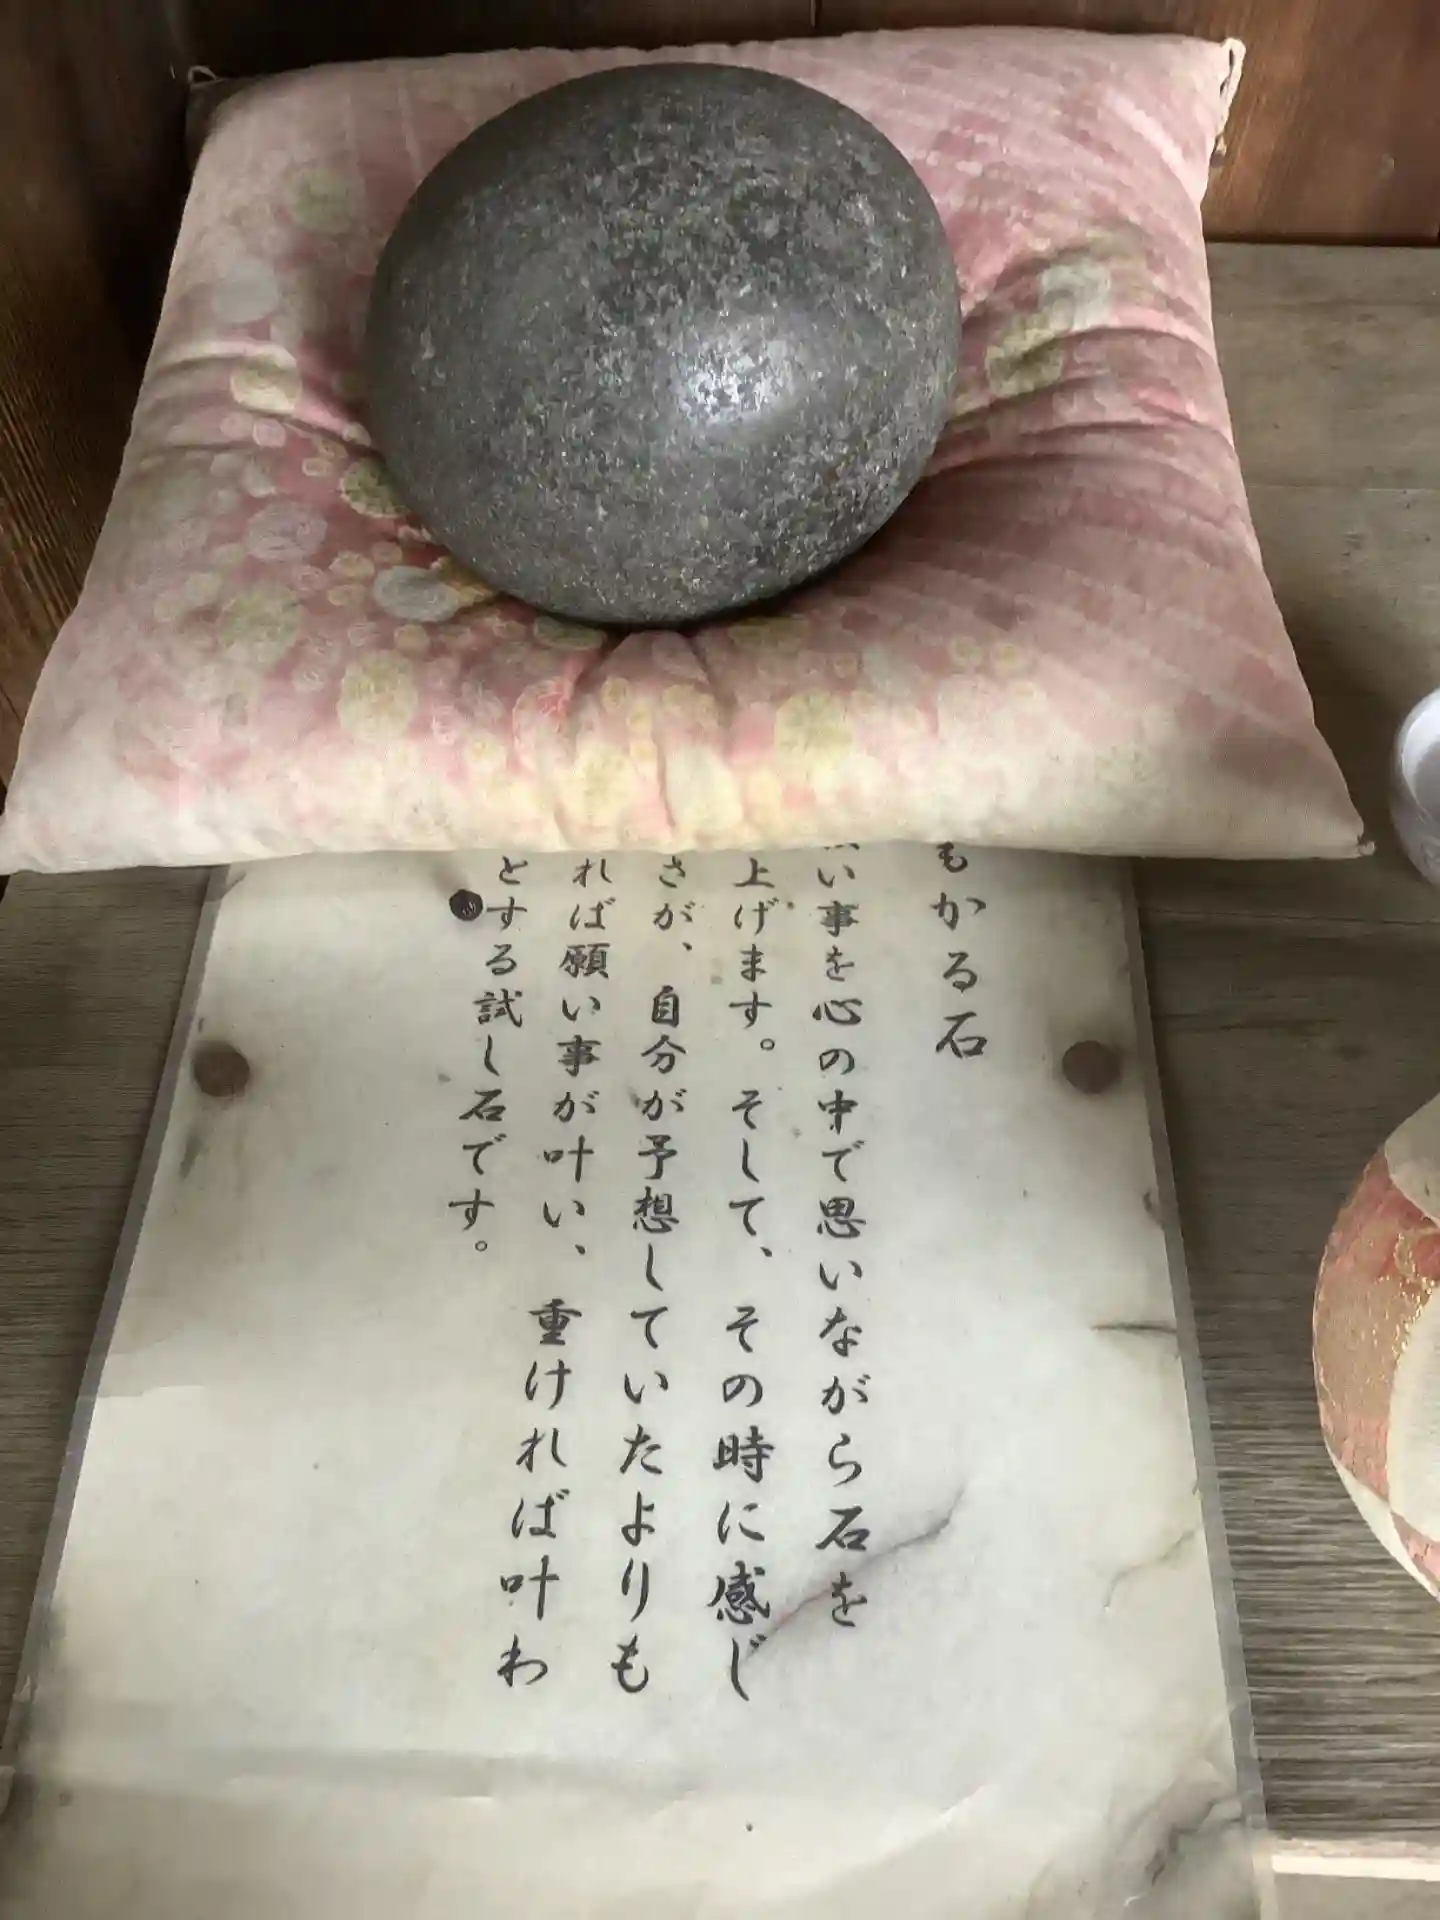 もかる石
い事を心の中で思いながら石を
上げます。そして、その時に感じ
さが、自分が予想していたよりも
れば願い事が叶い、重ければ叶わ
とする試し石です。